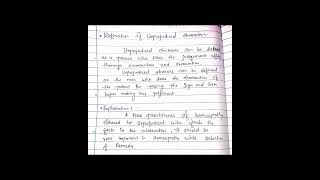 • Defination of Unprejudiced observer:-
Unprejudiced observer can be defined
as a person who takes the judgement after
through examination and observation.
Unprejudiced observer can be defined
as the man who does the observation of
the patient for taking the sign and
before making any judgement.
• Explanation:
A true practitioner of homoeopathy
should be unprejudiced who finds the
facts in his observation, It should be
very important in homoeopathy while selection
of Remedy.